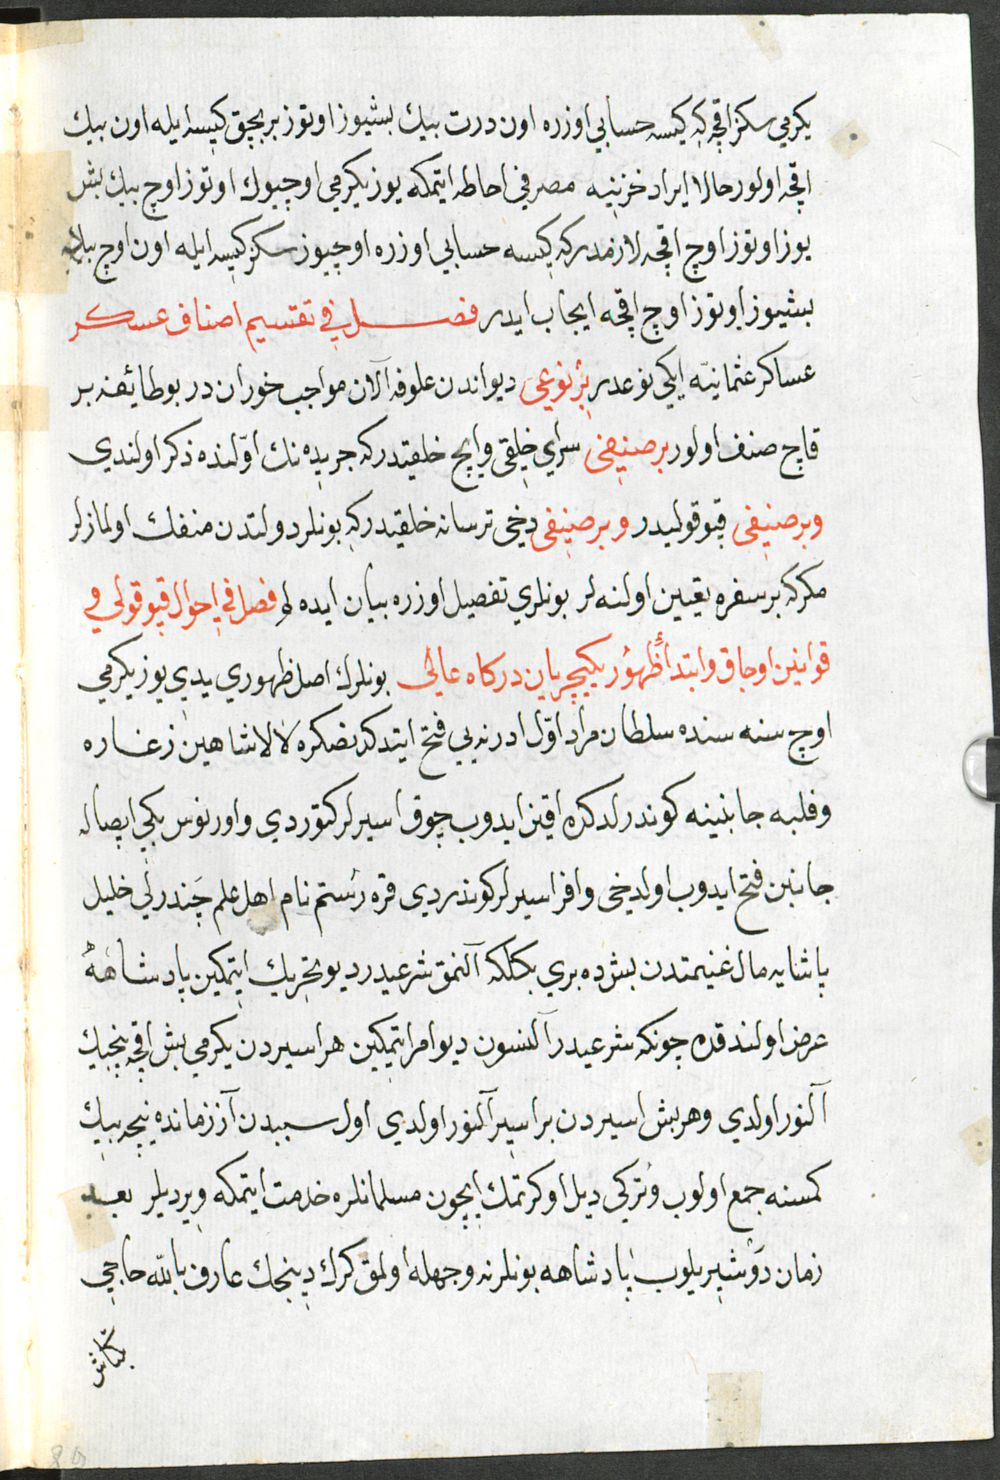 يكرمي سكز اقچه كه كيسه حسابي اوزره اون درت بيك بشيوز اوتوز بر بچق كيسه ايله اون بيك
اقچه اولور حالا ايراد خزينه مصرفي احاطه ايتمكه يوز يكرمي اوچ يوك اوتوز اوچ بيك بش
يوز اوتوز اوچ اقچه لازمدر كه كيسه حسابي اوزره اوچيوز سكز كيسه ايله اون اوچ بيك
بشيوز اوتوز اوچ اقچه ايجاب ايدر فصل في تقسيم اصناف عسكر
عساكر عثمانيّه ايكي نوعدر بر نوعى ديواندن علوفه آلان مواجب خوراندر بو طائفه بر
قاچ صنف اولور بر صنيفى سراي خلقى و ايچ خلقيدر كه جريده نك اوّلنده ذكر اولندي
و بر صنيفى قپو قوليدر و بر صنيفى دخى ترسانه خلقيدر كه بونلر دولتدن منفك اولمازلر
مكر كه بر سفره تعيين اولنه لر بونلري تفصيل اوزره بيان ايده لم فصل في احوال قپو قولي و
قوانين اوجاق و ابتداء ظهور يكيچريان دركاه عالى بونلرك اصل ظهوري يدي يوز يكرمي
اوچ سنه سنده سلطان مراد اوّل ادرنه يي فتح ايتدكدنصكره لالا شاهين زغاره
و فلبه جانبينه كوندرلدكده اقين ايدوب چوق اسيرلر كتوردي و اورنوس بكي ايصاله
جانبين فتح ايدوب اولدخى وافر اسيرلر كوندردي قره رستم نام اهل علم چندرلي خليل
پاشايه مال غنيمتدن بشده بري بكلكه آلنمق شرعيدر ديو تحريك ايتمكين پادشاهه
عرض اولندقده چونكه شرعيدر آلنسون ديو امر ايتمكين هر اسيردن يكرمي بش اقچه پنجيك
آلنور اولدي و هر بش اسيردن بر اسير آلنور اولدي اول سببدن آز زمانده نيچه بيك
كمسنه جمع اولوب و تركي ديل اوكرتمك ايچون مسلمانلره خدمت ايتمكه ويرديلر بعد
زمان دوشيريلوب پادشاهه بونلر نه وجهله اولمق كرك دينجك عارف بالله حاجي
بكتاش